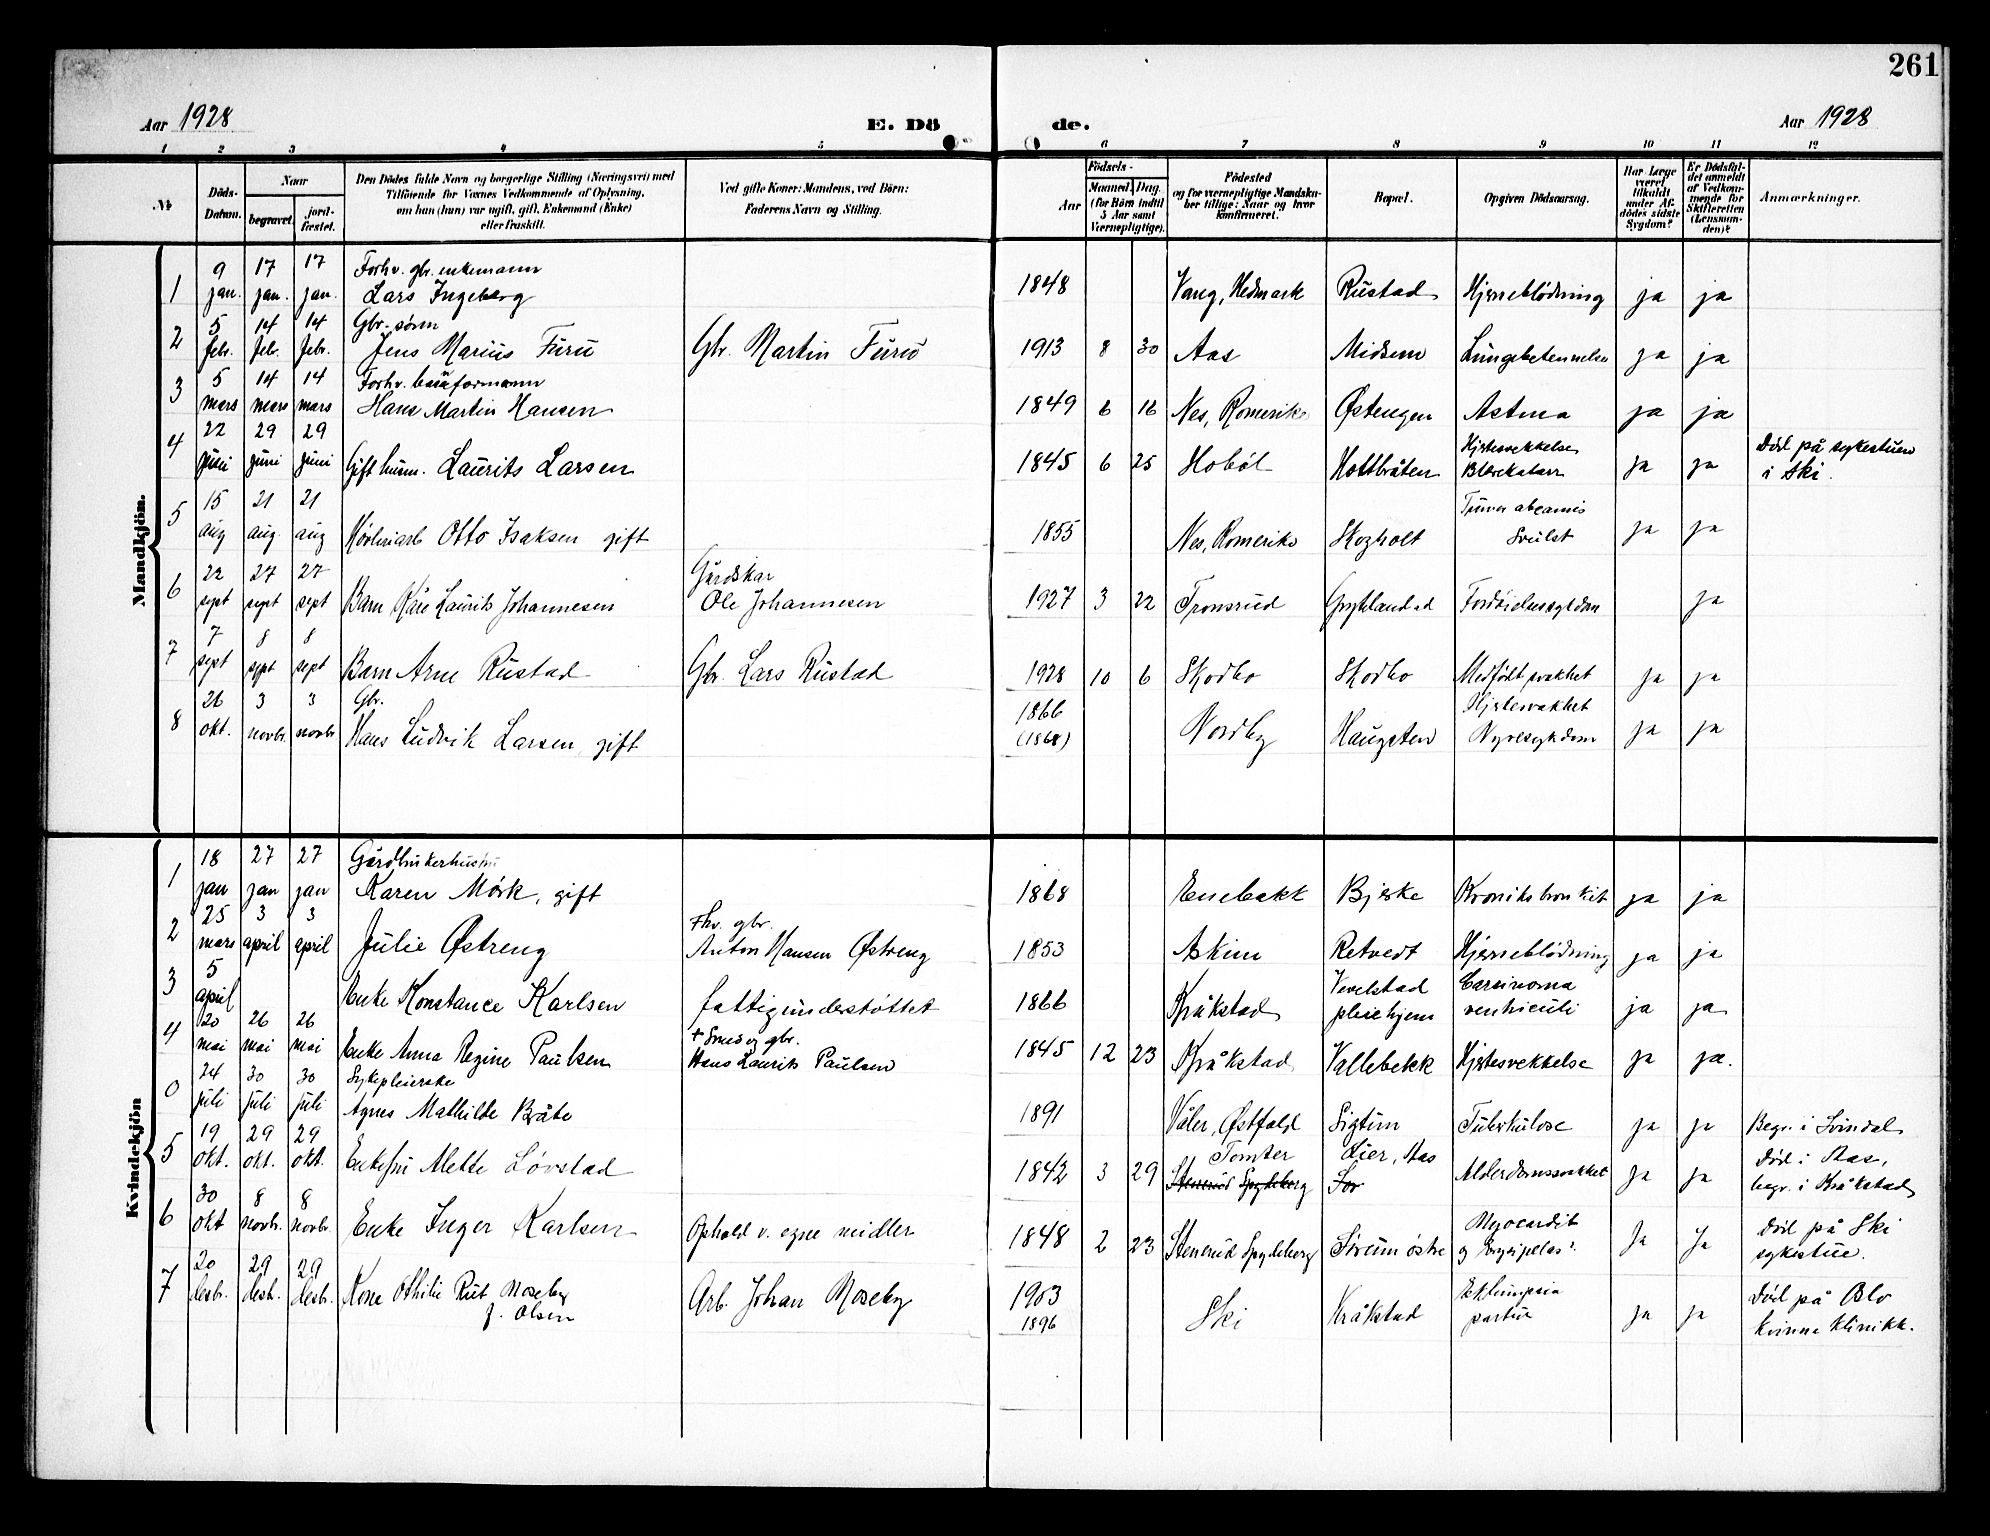 261
Aar 1928
E. Dö
de.
Aar 1928
1 2 3 4 5 6 7 8 9 10 11 12
No
Döds-
Datum.
Naar
begravet.
jord-
fæstet.
Den Dödes fulde Navn og borgerlige Stilling (Næringsvei) med
Tilföiende for Voxnes Vedkommende af Oplysning,
om han (hun) var ugift, gift, Enkemand (Enke)
eller fraskilt.
Ved gifte Koner: Mandens, ved Börn:
Faderens Navn og Stilling.
Födsels-
Aar
Maaned. Dag.
(for Börn indtil
5 Aar samt
Værnepligtige).
Födested
og for værnepligtige Mandska-
ber tillige: Naar og hvor
konfirmeret.
Bopæl.
Opgiven Dödsaarsag.
Har Læge
været
tilkaldt
under Af-
dödes sidste
Sygdom?
Er Dödsfal-
det anmeldt
af Vedkom-
mende for
Skifteretten
(Lensman-
den)?
Anmærkninger.
Mandkjön.
1
9 17 17
jan. jan. jan.
Forhv. gbr. enkemann
Lars Ingeberg
1848
Vang, Hedmark
Rustad
Hjerneblödning
ja ja
2
5 14 14
febr. feb. febr.
Gbr. sönn
Jens Marius Furu
Gbr. Martin Furu
1913 8 30
Aas
Midsem
Lungebetennelse
ja ja
3
5 14 14
mars mars mars
Forhv. baneformann
Hans Martin Hansen
1849 6 16
Nes, Romerike
Østengen
Astma
ja ja
4
22 29 29
juni juni juni
Gift husm. Laurits Larsen
1845 6 25
Hobøl
Hottbråten
Hjertesvekkelse
Blærekatarr
ja ja
Död på sykestuen
i Ski.
5
15 21 21
aug aug. aug
Otto Isaksen gift
1855
Nes, Romerike
Skogholt
Svulst
ja ja
6
22 27 27
sept sept sept
Barn Kåre Laurits Johannesen
Gårdskar
Ole Johannesen
1927 3 22
Tronsrud
ja
7
7 8 8
sept sept sept
Barn Arne Rustad
Gbr. Lars Rustad
1928 10 6
Skodbo
Skodbo
Medfödt svakhet
ja ja
8
26 3 3
okt. novbr. novbr
Gbr.
Hans Ludvik Larsen, gift
1866
(1868)
Nordby
Haugsten
Hjertesvakhet
Nyresykdom
ja ja
Kvindekjön
1
18 27 27
jan jan jan
Gårdbrukerhustru
Karen Mörk, gift
1868
Enebakk
Bjerke
Kronik bronkit
ja ja
2
25 3 3
mars april april
Julie Østreng
Fhv. gbr.
Anton Hansen Østreng
1853
Askim
Retvedt
Hjerneblödning
ja ja
3
5
april
Enke Konstance Karlsen
fattigunderstøttet
1866
Kråkstad
Vevelstad
pleiehjem
Carsinoma
ventriculi
ja ja
4
20 26 26
mai mai mai
Enke Anna Regine Paulsen
+ Smed og gbr.
Hans Laurits Paulsen
1845 12 23
Kråkstad
Vallebekk
Hjertesvekkelse
ja ja.
0
24 30 30
juli juli juli
Sykepleierske
Agnes Mathilde Bråte
1891
Våler, Østfold
Sigtun
Tuberkulose
ja ja
Begr. i Svindal
5
19 29 29
okt. okt. okt.
Enkefru Mette Løvstad
1842 3 29
Tomter
Stenerud Spydeberg
Lier, Aas
Alderdomssvakhet
ja ja
Död i Aas,
begr. i Kråkstad
6
30 8 8
okt novbr. novbr.
Enke Inger Karlsen
Ophold v. egne midler
1848 2 23
Stenerud Spydeberg
Sörum östre
Myocardit
og Erysipelas?
Ja Ja
Död på Ski
sykestue.
7
20 29 29
desbr. desb. desbr.
Kone Othilie Rut Moseby
f. Olsen
Arb. Johan Moseby
1903
1896
Ski
Kråkstad
Eklampsia
partus
ja ja
Död på Oslo
kvinneklinikk.